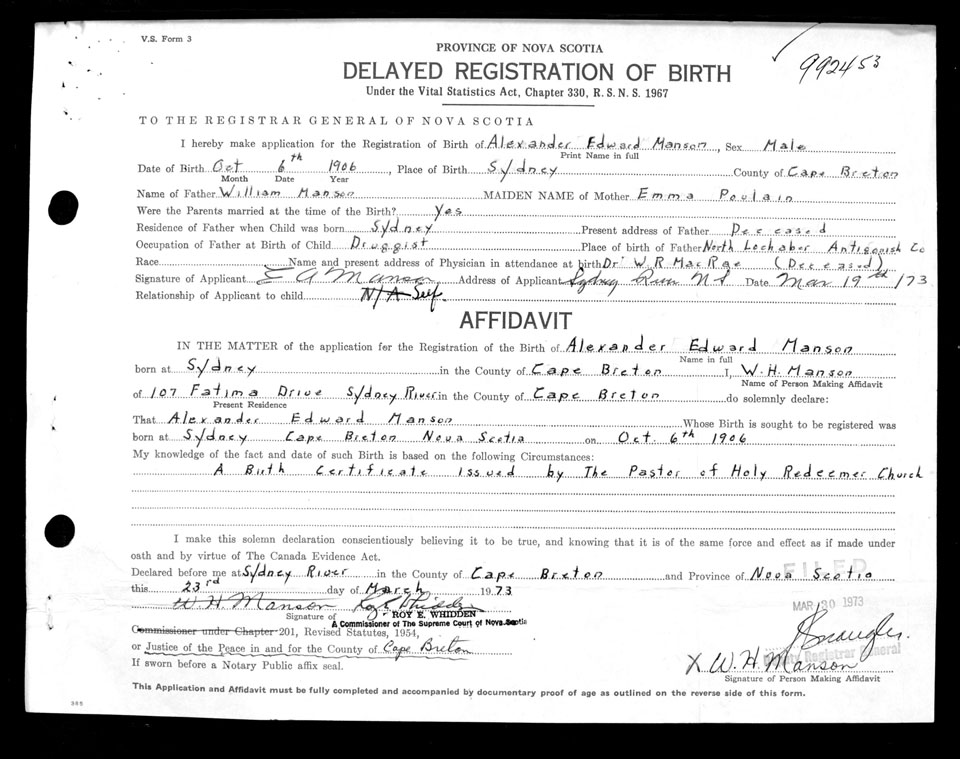 V.S. Form 3
992453
PROVINCE OF NOVA SCOTIA
DELAYED REGISTRATION OF BIRTH
Under the Vital Statistics Act, Chapter 330, R. S. N. S. 1967
TO THE REGISTRAR GENERAL OF NOVA SCOTIA
I hereby make application for the Registration of Birth of Alexander Edward Manson, Sex Male
Print Name in full
Date of Birth Oct 6th 1906, Place of Birth Sydney County of Cape Breton
Month Date Year
Name of Father William Manson MAIDEN NAME of Mother Emma Poulain
Were the Parents married at the time of the Birth? Yes
Residence of Father when Child was born Sydney Present address of Father Deceased
Occupation of Father at Birth of Child Druggist Place of birth of Father North Lochaber Antigonish Co
Race Name and present address of Physician in attendance at birth Dr W R MacRae (Deceased)
Signature of Applicant E A Manson Address of Applicant Sydney River NS Date Mar 19th /73
Relationship of Applicant to child N/A Self.
AFFIDAVIT
IN THE MATTER of the application for the Registration of the Birth of Alexander Edward Manson
Name in full
born at Sydney in the County of Cape Breton I, W. H. Manson
Name of Person Making Affidavit
of 107 Fatima Drive Sydney River in the County of Cape Breton do solemnly declare:
Present Residence
That Alexander Edward Manson Whose Birth is sought to be registered was
born at Sydney Cape Breton Nova Scotia on Oct. 6th 1906
My knowledge of the fact and date of such Birth is based on the following Circumstances:
A Birth Certificate issued by The Pastor of Holy Redeemer Church
I make this solemn declaration conscientiously believing it to be true, and knowing that it is of the same force and effect as if made under
oath and by virtue of The Canada Evidence Act.
Declared before me at Sydney River in the County of Cape Breton and Province of Nova Scotia
FILED
this 23rd day of March 1973
MAR 30 1973
W. H. Manson Roy E Whidden
Signature of ROY E. WHIDDEN
A Commissioner of The Supreme Court of Nova Scotia
Commissioner under Chapter 201, Revised Statutes, 1954,
or Justice of the Peace in and for the County of Cape Breton
Deputy Registrar General
X W. H. Manson
If sworn before a Notary Public affix seal.
Signature of Person Making Affidavit
This Application and Affidavit must be fully completed and accompanied by documentary proof of age as outlined on the reverse side of this form.